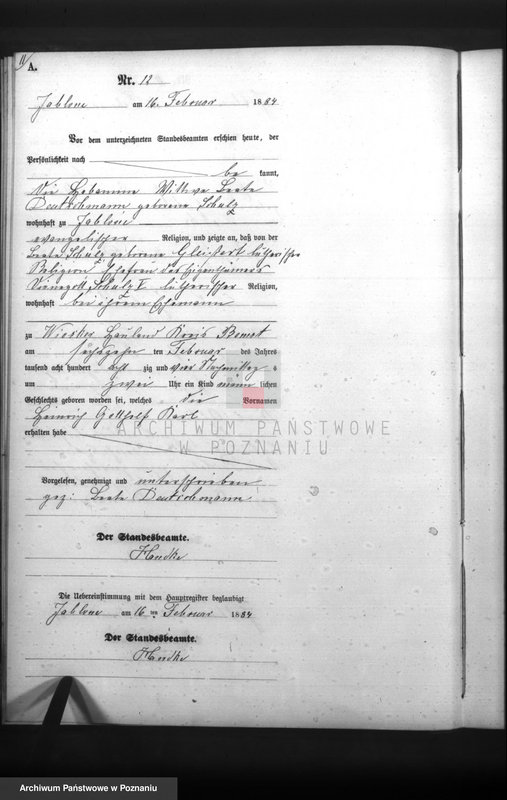 11
A.
Nr. 12
Jablone am 16. Februar 1884
Vor dem unterzeichneten Standesbeamten erschien heute, der
Persönlichkeit nach
be kannt,
die Hebamme Wittwe Beate
Deutschmann geborene Schulz
wohnhaft zu Jablone
evangelischer Religion, und zeigte an, daß von der
Beate Schulz geborene Gleisert lutherischer
Religion Ehefrau des Eigenthümers
Schulz I lutherischer Religion,
wohnhaft bei ihrem Ehemann
zu Wiosker Hauland Kreis Bomst
am sechszehn ten Februar des Jahres
tausend acht hundert acht zig und vier Nachmittag s
um zwei Uhr ein Kind männ lichen
Geschlechts geboren worden sei, welches die Vornamen
Heinrich Gotthelf Karl
erhalten habe
ARCHIWUM PAŃSTWOWE
W POZNANIU
Vorgelesen, genehmigt und unterschrieben
gez: Beate Deutschmann
Der Standesbeamte.
Handke
Die Uebereinstimmung mit dem Hauptregister beglaubigt
Jablone am 16 ten Februar 1884
Der Standesbeamte.
Handke
Archiwum Państwowe w Poznaniu